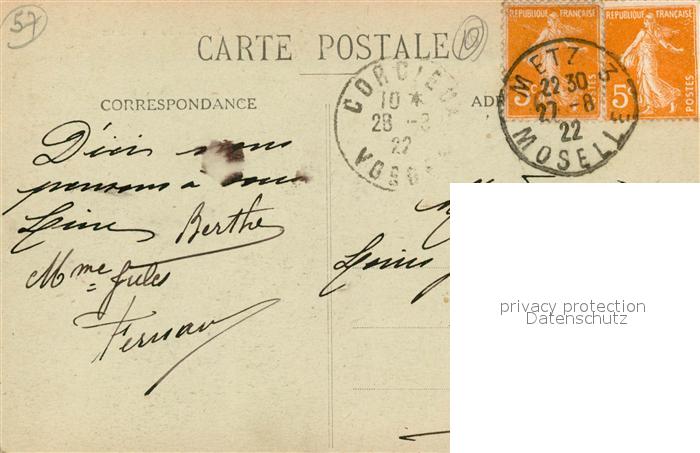 57
CARTE POSTALE
10
REPUBLIQUE FRANÇAISE
REPUBLIQUE FRANÇAISE
5c POSTES
5c POSTES
METZ 3
22 30
27-8
22
MOSELLE
CORCIEUX
10 *
28-8
22
VOSGES
CORRESPONDANCE
ADR
D'ici nous
pensons à vous
Berthe
Mme Jules
Fernan
privacy protection
Datenschutz